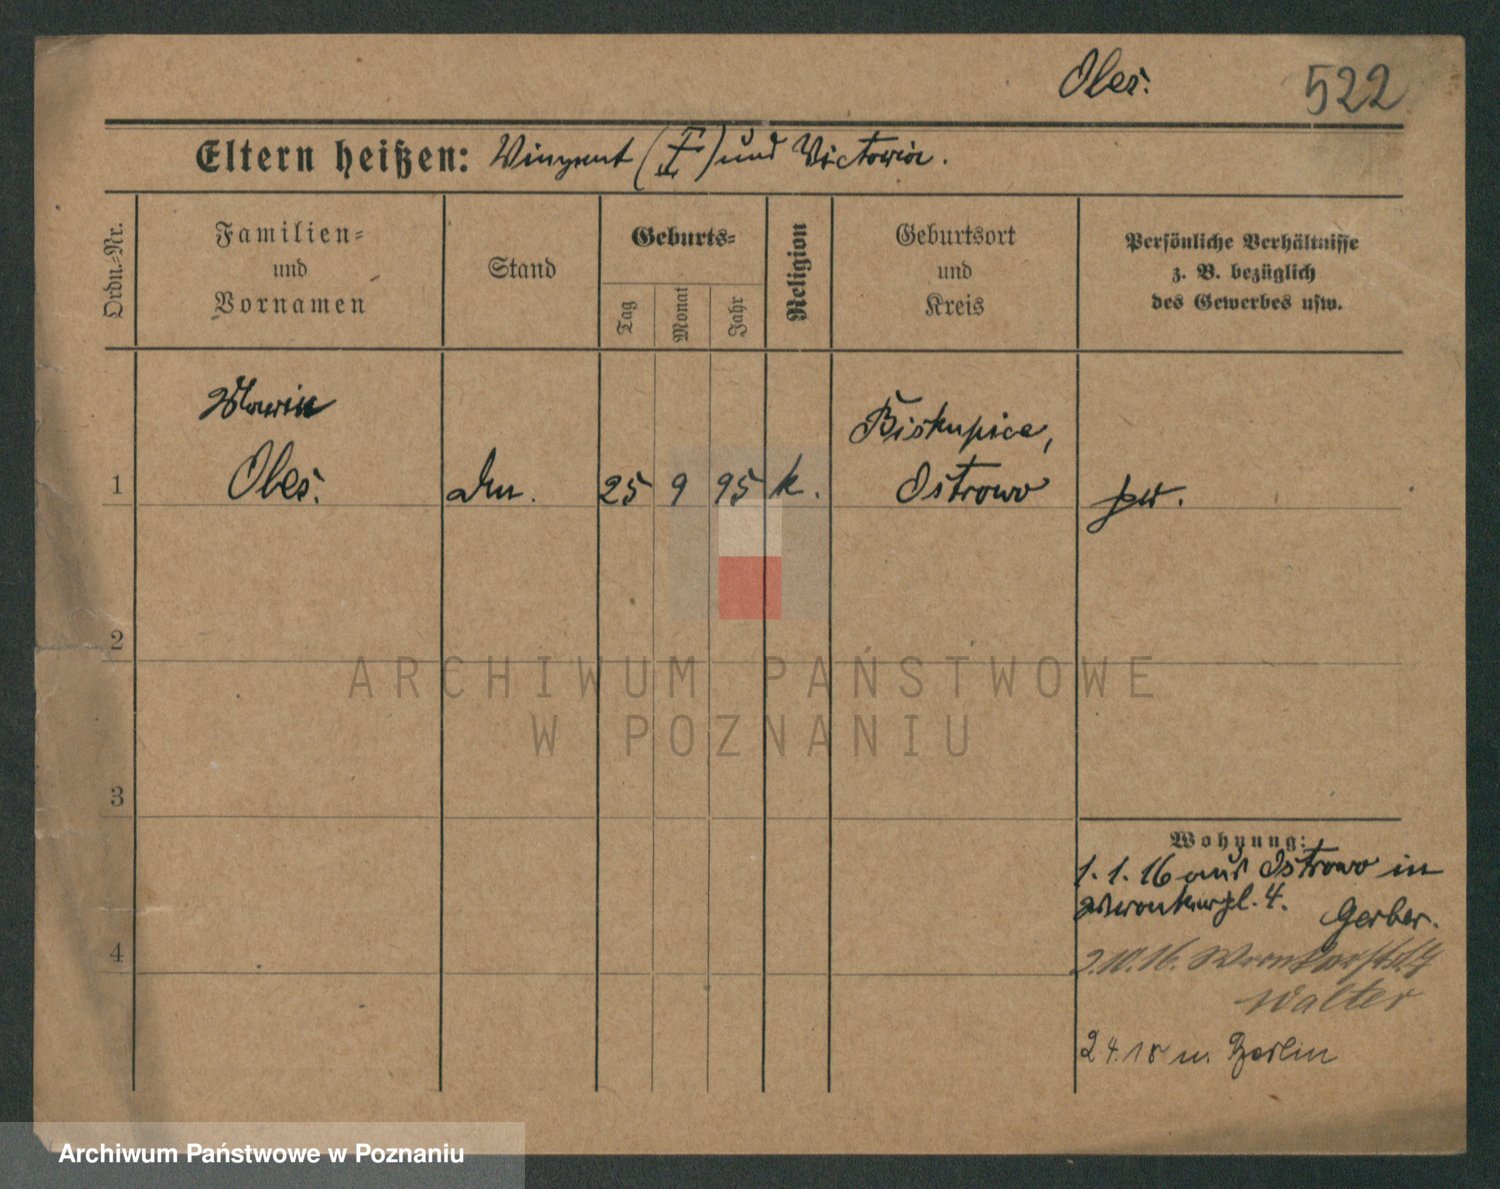 Oles.
522
Eltern heißen: Vinzent (†) und Victoria.
Ordn.-Nr.
Familien-
und
Vornamen
Stand
Geburts-
Tag
Monat
Jahr
Religion
Geburtsort
und
Kreis
Persönliche Verhältnisse
z. B. bezüglich
des Gewerbes usw.
Oles.
1
25
9
95
k.
Biskupice,
Ostrowo
2
3
4
Wohnung:
1. 1. 16 aus Ostrowo in
4. Gerber.
Walter
2 4. 18 n. Berlin
ARCHIWUM PAŃSTWOWE
W POZNANIU
Archiwum Państwowe w Poznaniu